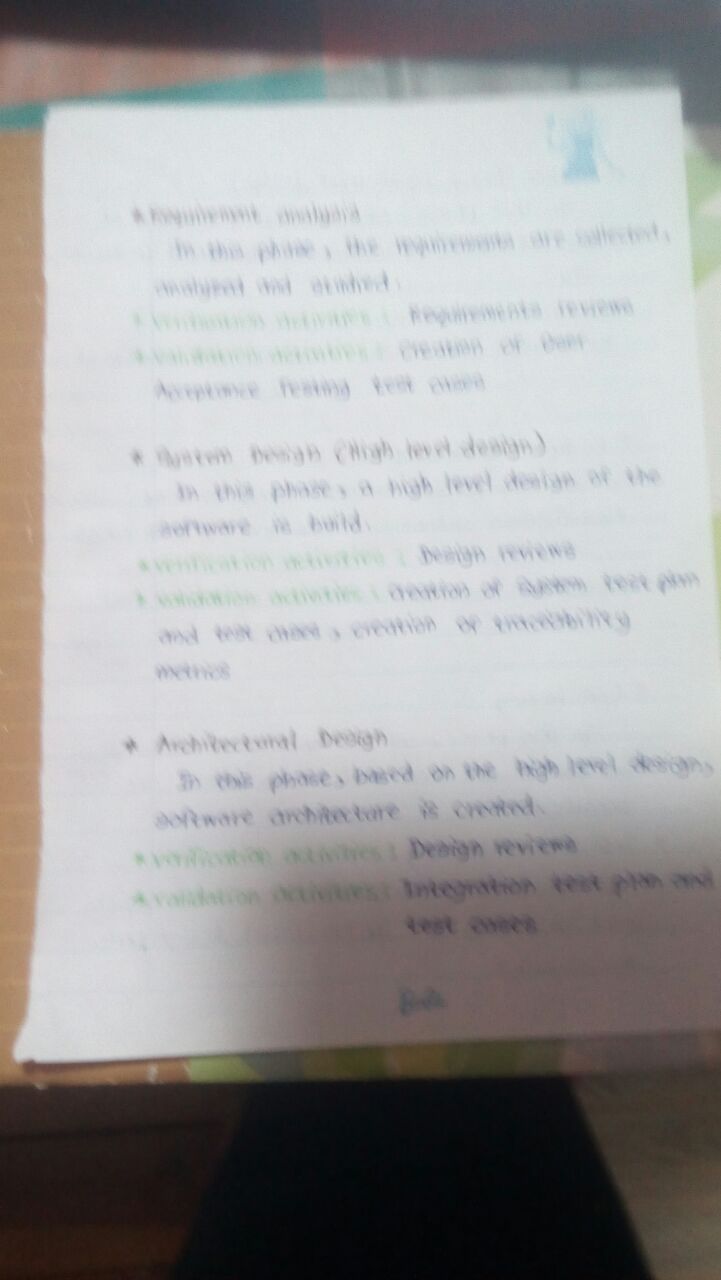 * Requirement analysis
In this phase, the requirements are collected,
analyzed and studied.
* Verification activities : Requirements reviews
* Validation activities : Creation of User
Acceptance Testing test cases
* System Design (High level design)
In this phase, a high level design of the
software is build.
* Verification activities : Design reviews
* Validation activities : Creation of System test plan
and test cases, creation of traceability
metrics
* Architectural Design
In this phase, based on the high level design,
software architecture is created.
* Verification activities : Design reviews
* Validation activities : Integration test plan and
test cases